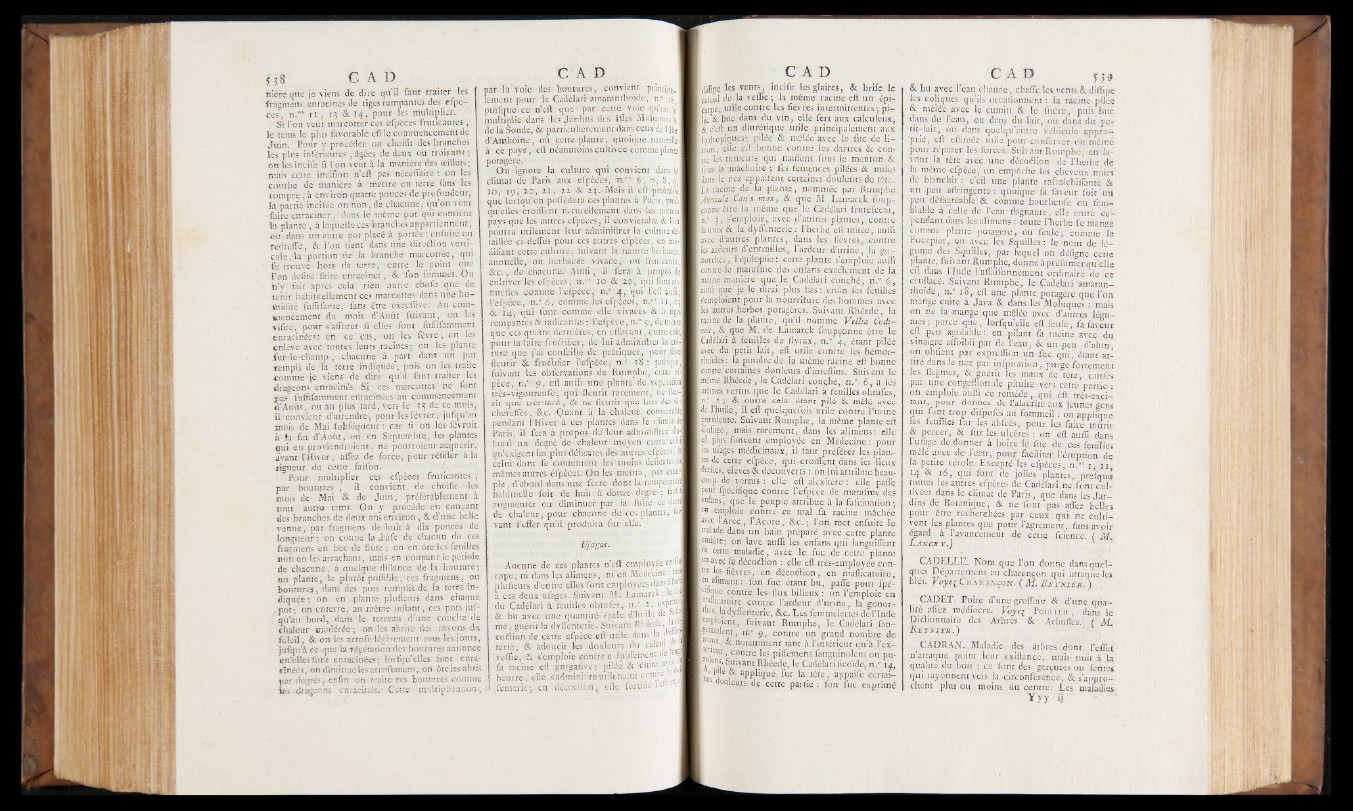 538 C A D
nière que je viens de dire qu'il faut traiter les
fragmens enracinés de tiges rempantes des espe-
ces, n.os 11, 13 & 14, pour les multiplier.
Si l'on veut marcotter ces espèces fruticantes,
le tems le plus favorable est le commencement de
Juin. Pour y procéder on choisit des branches
les plus inférieures, âgées de deux ou trois ans;
on les incise si l'on veut à la manière des œillets;
mais cette incision n'est pas nécessaire: on les
courbe de manière à mettre en terre sans les
rompre, à environ quatre pouces de profondeur,
la partie incisée ou non, de chacune, qu'on veut
faire enraciner, dans le même pot qui contient
la plante, à laquelle ces branches appartiennent,
ou dans un autre pot placé à portée: ensuite on
redresse, & l'on tient dans une direction verti-
cale, la portion de la branche marcottée, qui
se trouve hors de terre, entre le point que
l'on desire faire enraciner, & son sommet. On
n'y fait après cela rien autre chose que de
tenir habituellement ces marcottes dans une hu-
midité suffisante, sans être excessive. Au com-
mencement du mois d'Août suivant, on les
visite, pour s'assurer si elles sont suffisamment
enracinées: en ce cas, on les sèvre, on les
enlève avec toutes leurs racines; on les plante
sur-le-champ, chacune à part dans un pot
rempli de la terre indiquée; puis on les traite
comme je viens de dire qu'il faut traiter les
drageons enracinés. Si ces marcottes ne sont
pas suffisamment enracinées au commencement
d'Août, ou au plus tard, vers le 15 de ce mois,
il convient d'attendre, pour les sévrer, jusqu'au
mois de Mai subséquent: car si on les sévroit
à la fin d'Août, ou en Septembre, les plantes
qui en proviendroient, ne pourroient acquérir,
avant l'Hiver, assez de force, pour résister à la
rigueur de cette saison.
Pour multiplier ces espèces fruticantes,
par boutures, il convient de choisir les
mois de Mai & de Juin, préférablement à
tout autre tems. On y procède en coupant
des branches de deux ans environ, & d'une belle
venue, par fragmens de huit à dix pouces de
longueur; on coupe la base de chacun de ces
fragmens en bec de flûte; on en ôte les feuilles
non en les arrachant, mais en coupant le pétiole
de chacune, à quelque distance de la bouture;
on plante, le plutôt possible, ces fragmens, ou
boutures, dans des pots remplis de la terre in-
diquée; on en plante plusieurs dans chaque
pot; on enterre, au même instant, ces pots jus-
qu'au bord, dans le terreau d'une couche de
chaleur modérée; on les abrite des rayons du
soleil, & on les arrose légèrement tous les jours,
jusqu'à ce que la végétation des boutures annonce
qu'elles sont enracinées: lorsqu'elles sont enra-
cinées, on diminue les arrosemens, on ôte les abris
par degrés, enfin on traite ces boutures comme
les dragons enracinés. Cette multiplication,
C A D
par la voie des boutures, convient
lement pour le Cadélari amaranthoïde, n.° 18,
puisque ce n'est que par cette voie qu'on le
multiplie dans les Jardins des Isles Moluques &
de la Sonde, & particulièrement dans ceux de l'Isle
d'Amboine, où cette plante, quoique naturelle
à ce pays, est néanmoins cultivée comme plante
potagère.
On ignore la culture qui convient dans le
climat de Paris aux espèces, n.os 6, 7, 8, 9,
10, 19, 20, 21, 22 & 23. Mais il est probable
que lorsqu'on possédera ces plantes à Paris, puis-
qu'elles croissent naturellement dans les mêmes
pays que les autres espèces, il conviendra & l'on
pourra utilement leur administrer la culture dé-
taillée ci-dessus pour ces autres espèces, en mo-
difiant cette culture, suivant la nature herbacée,
annuelle, ou herbacée vivace, ou fruticante,
&c., de chacune. Ainsi, il sera à propos de
cultiver les espèces, n.os 10 & 20, qui sont an-
nuelles comme l'espèce, n.° 4, qui l'est aussi;
l'espèce, n.° 6, comme les espèces, n.os 11, 13
& 14, qui sont comme elle vivaces & à tiges
rempantes & radicantes; l'espèce, n.° 9, de même
que ces quatre dernières, en essayant, outre cela,
pour la faire fructifier, de lui administrer la cul-
ture que j'ai conseillé de pratiquer, pour faire
fleurir & fructifier l'espèce, n.° 18: puisque,
suivant les observations de Rumphe, cette es-
pèce, n.° 9, est aussi une plante de végétation
très-vigoureuse, qui fleurit rarement, ne fleu-
rit que très-tard, & ne fleurit que lors des sé-
cheresses, &c. Quant à la chaleur convenable
pendant l'Hiver à ces plantes dans le climat de
Paris, il sera à propos de leur administrer d'a-
bord un degré de chaleur moyen entre celui
qu'exigent les plus délicates des autres espèces, &
celui dont se contentent les moins délicates des
mêmes autres espèces. On les mettra, par exem-
ple, d'abord dans une serre dont la température
habituelle soit de huit à douze degrés; sauf à
augmenter ou diminuer par la suite ce degré
de chaleur, pour chacune de ces plantes, sui-
vant l'effet qu'il produira sur elle.
Usages.
Aucune de ces plantes n'est employée en Eu-
rope, ni dans les alimens, ni en Médecine:
plusieurs d'entre elles sont employées dans l'Inde
à ces deux usages. Suivant M. Lamarck, le suc
du Cadélari à feuilles obtuses, n.° 2, exprimé
& bu avec une quantité égale d'huile de
mé, guérit la dyssenterie. Suivant Rhéede,
coction de cette espèce est utile dans la dyssen-
terie, & adoucit les douleurs du calcul de la
vessie, & s'emploie contre
sa racine est purgative; pilée & cuite avec du
beurre, elle s'administre utilement contre la dys-
senterie; en décoction, elle fortifie
C A D
dissipe les vents, incise les glaires, & brise le
calcul de la vessie; la même racine est un épi-
utile contre les fièvres intermittentes; pi-
lée & bue dans du vin, elle sert aux calculeux,
& c'est un diurétique utile principalement aux
hydropiques; pilée & mêlée avec le suc de li-
mon, elle est bonne contre les dartres & con-
tre les tumeurs qui naissent sous le menton &
sous la mâchoire; ses semences pilées & mises
dans le nez appaisent certaines douleurs de tête.
La racine de la plante, nommée par Rumphe
Auricula Canis mas, & que M Lamarck soup-
çonne être la même que le Cadélari frutescent,
n.° 3, s'emploie, avec d'autres plantes, contre
la toux & la dyssenterie: l'herbe est usitée, aussi
avec d'autres plantes, dans les fièvres, contre
les ardeurs d'entrailles, l'ardeur d'urine, la go-
norrhée, l'épilepsie: cette plante s'emploie aussi
contre le marasme des enfans exactement de la
même manière que le Cadélari couché, n.° 6,
ainsi que je le dirai plus bas: enfin ses feuilles
s'emploient pour la nourriture des hommes avec
les autres herbes potagères. Suivant Rhéede, la
racine de la plante, qu'il nomme Vellia Codi-
veli, & que M. de Lamarck soupçonne être le
Cadélari à feuilles de styrax, n.° 4, étant pilée
avec du petit lait, est utile contre les hémor-
rhoïdes: la poudre de la même racine est bonne
contre certaines douleurs d'intestins. Suivant le
même Rhéede, le Cadélari couché, n.° 6, a les
mêmes vertus que le Cadélari à feuilles obtuses,
n.° 2; & outre cela étant pilé & mêlé avec
de l'huile, il est quelquefois utile contre l'urine
purulente. Suivant Rumphe, la même plante est
d'usage, mais rarement, dans les alimens: elle
est plus souvent employée en Médecine: pour
les usages médicinaux, il faut préférer les plan-
tes de cette espèce, qui croissent dans les lieux
stériles, élevés & découverts: on lui attribue beau-
coup de vertus: elle est alexitère: elle passe
pour spécifique contre l'espèce de marasme des
enfans, que le peuple attribue à la fascination;
on emploie contre ce mal sa racine mâchée
avec l'Arec, l'Acore, &c.; l'on met ensuite le
malade dans un bain préparé avec cette plante
cuite; on lave aussi les enfans qui languissent
de cette maladie, avec le suc de cette plante
ou avec sa décoction: elle est très-employée con-
tre les fièvres, en décoction, en masticatoire,
en aliment: son suc étant bu, passe pour spé-
cifique contre les flux bilieux: on l'emploie en
masticatoire contre l'ardeur d'urine, la gonor-
rhée, la dyssenterie, &c. Les femmelettes de l'Inde
emploient, suivant Rumphe, le Cadélari san-
guinolent, n.° 9, contre un grand nombre de
maux, & notamment tant à l'intérieur qu'à l'ex-
térieur, contre les pissemens sanguinolens ou pu-
rulens. Suivant Rhéede, le Cadélari ficoïde, n.° 14,
pilé & appliqué sur la tête, appaise certai-
nes douleurs de cette partie: son suc exprimé
C A D 539
& bu avec l'eau chaude, chasse les vents & dissipe
les coliques qu'ils occasionnent: la racine pilée
& mêlée avec le cumin & le sucre, puis bue
dans de l'eau, ou dans du lait, ou dans du pe-
tit-lait, ou dans quelqu'autre véhicule appro-
prié, est estimée utile pour conserver ou même
pour réparer les forces. Suivant Rumphe, on la-
vant la tête avec une décoction de l'herbe de
la même espèce, on empêche les cheveux noirs
de blanchir: c'est une plante rafraîchissante &
un peu astringente: quoique sa saveur soit un
peu désagréable & comme bourbeuse ou sem-
blable à celle de l'eau stagnante, elle entre ce-
pendant dans les alimens: toute l'herbe se mange
comme plante potagère, ou seule, comme le
Pourpier, ou avec les Squilles: le nom de lé-
gume des Squilles, par lequel on désigne cette
plante, suivant Rumphe, donne à présumer qu'elle
est dans l'Inde l'assaisonnement ordinaire de ce
crustacé. Suivant Rumphe, le Cadélari amaran-
thoïde, n.° 18, est une plante potagère que l'on
mange cuite à Java & dans les Moluques: mais
on ne la mange que mêlée avec d'autres légu-
mes; parce que, lorsqu'elle est seule, sa saveur
est peu agréable: en pilant sa racine avec du
vinaigre affoibli par de l'eau, & un peu d'alun,
on obtient par expression un suc qui, étant at-
tiré dans le nez par inspiration, purge fortement
les flegmes, & guérit les maux de tête, causés
par une congestion de pituite vers cette partie:
on emploie aussi ce remède, qui est très-exci-
tant, pour donner de l'alacrité aux jeunes gens
qui sont trop disposés au sommeil: on applique
les feuilles sur les abscès, pour les faire mûrir
& percer, & sur les ulcères: on est aussi dans
l'usage de donner à boire le suc de ces feuilles
mêlé avec de l'eau, pour faciliter l'éruption de
la petite vérole. Excepté les espèces, n.os 1, 11,
14 & 16, qui sont de jolies plantes, presque
toutes les autres espèces de Cadélari ne sont cul-
tivées dans le climat de Paris, que dans les Jar-
dins de Botanique, & ne sont pas assez belles
pour être recherchées par ceux qui ne culti-
vent les plantes que pour l'agrément, sans avoir
égard à l'avancement de cette science. ( M.
LANCRY.)
CADELLE. Nom que l'on donne dans quel-
ques Départemens au charençon qui attaque les
blés. Voyez CHARENÇON. ( M. REYNIER. )
CADET. Poire d'une grosseur & d'une qua-
lité assez médiocre. Voyez POIRIER, dans le
Dictionnaire des Arbres & Arbustes. ( M.
REYNIER. )
CADRAN. Maladie des arbres dont l'effet
n'attaque point leur existence, mais nuit à la
qualité du bois; ce sont des gerçures ou fentes
qui rayonnent vers la circonférence, & s'appro-
chent plus ou moins du centre. Les maladies
Yyy ij